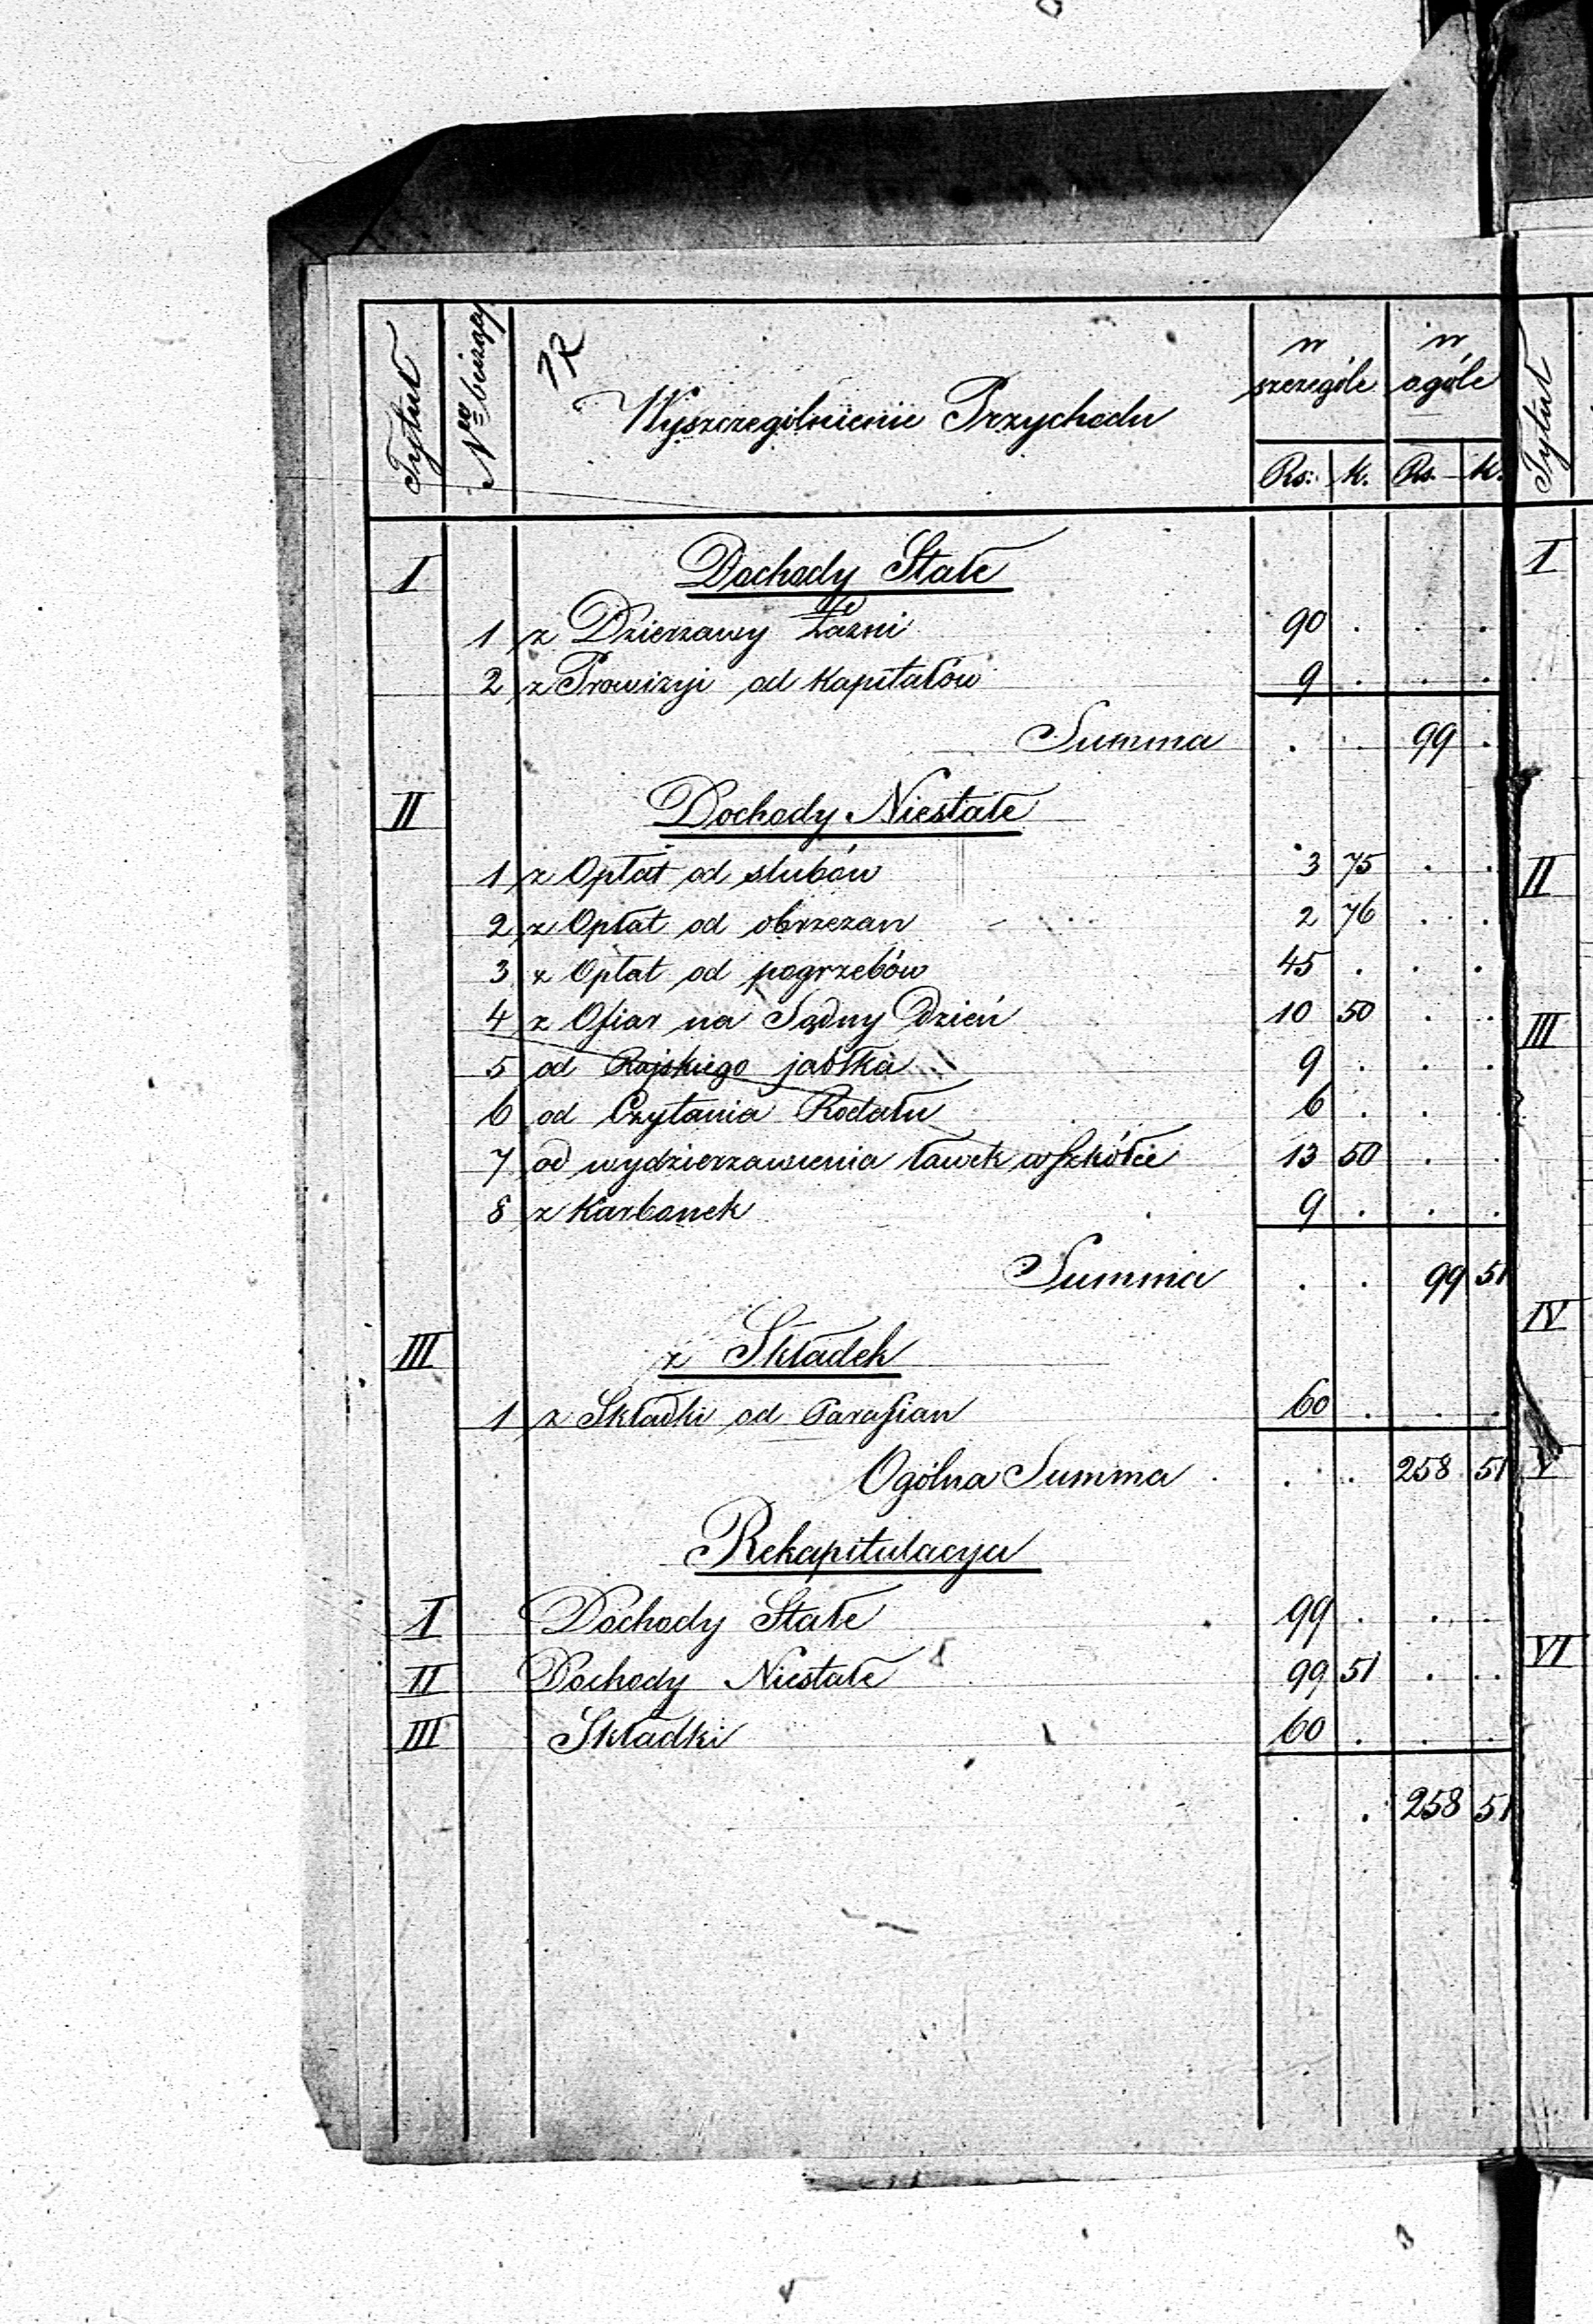 Tytuł
Nro bieżący
Wyszczególnienie Przychodu
w szczególe
w ogóle
Rs: k. Rs. k.
Tytuł
I Dochody Stałe
1 z Dzierzawy Łaźni 90 . . .
2 z Prowizyi od Kapitałów 9 . . .
Summa . . 99 .
II Dochody Niestałe
1 z Opłat od slubów 3 75 . .
2 z Opłat od obrzezan 2 76 . .
3 z Opłat od pogrzebów 45 . . .
4 z Ofiar na Sądny Dzień 10 50 . .
5 od Rajskiego jabłka 9 . . .
6 od Czytania Rodału 6 . .
7 od wydzierzawienia ławek w Szkółce 13 50 . .
8 z Karbonek 9 . . .
Summa . . 99 51
III z Składek
1 z Składki od Parafian 60 . . .
Ogólna Summa . . 258 51
Rekapitulacya
I Dochody Stałe 99 . . .
II Dochody Niestałe 99 51 . .
III Składki 60 . . .
. . 258 51
I
II
III
IV
V
VI